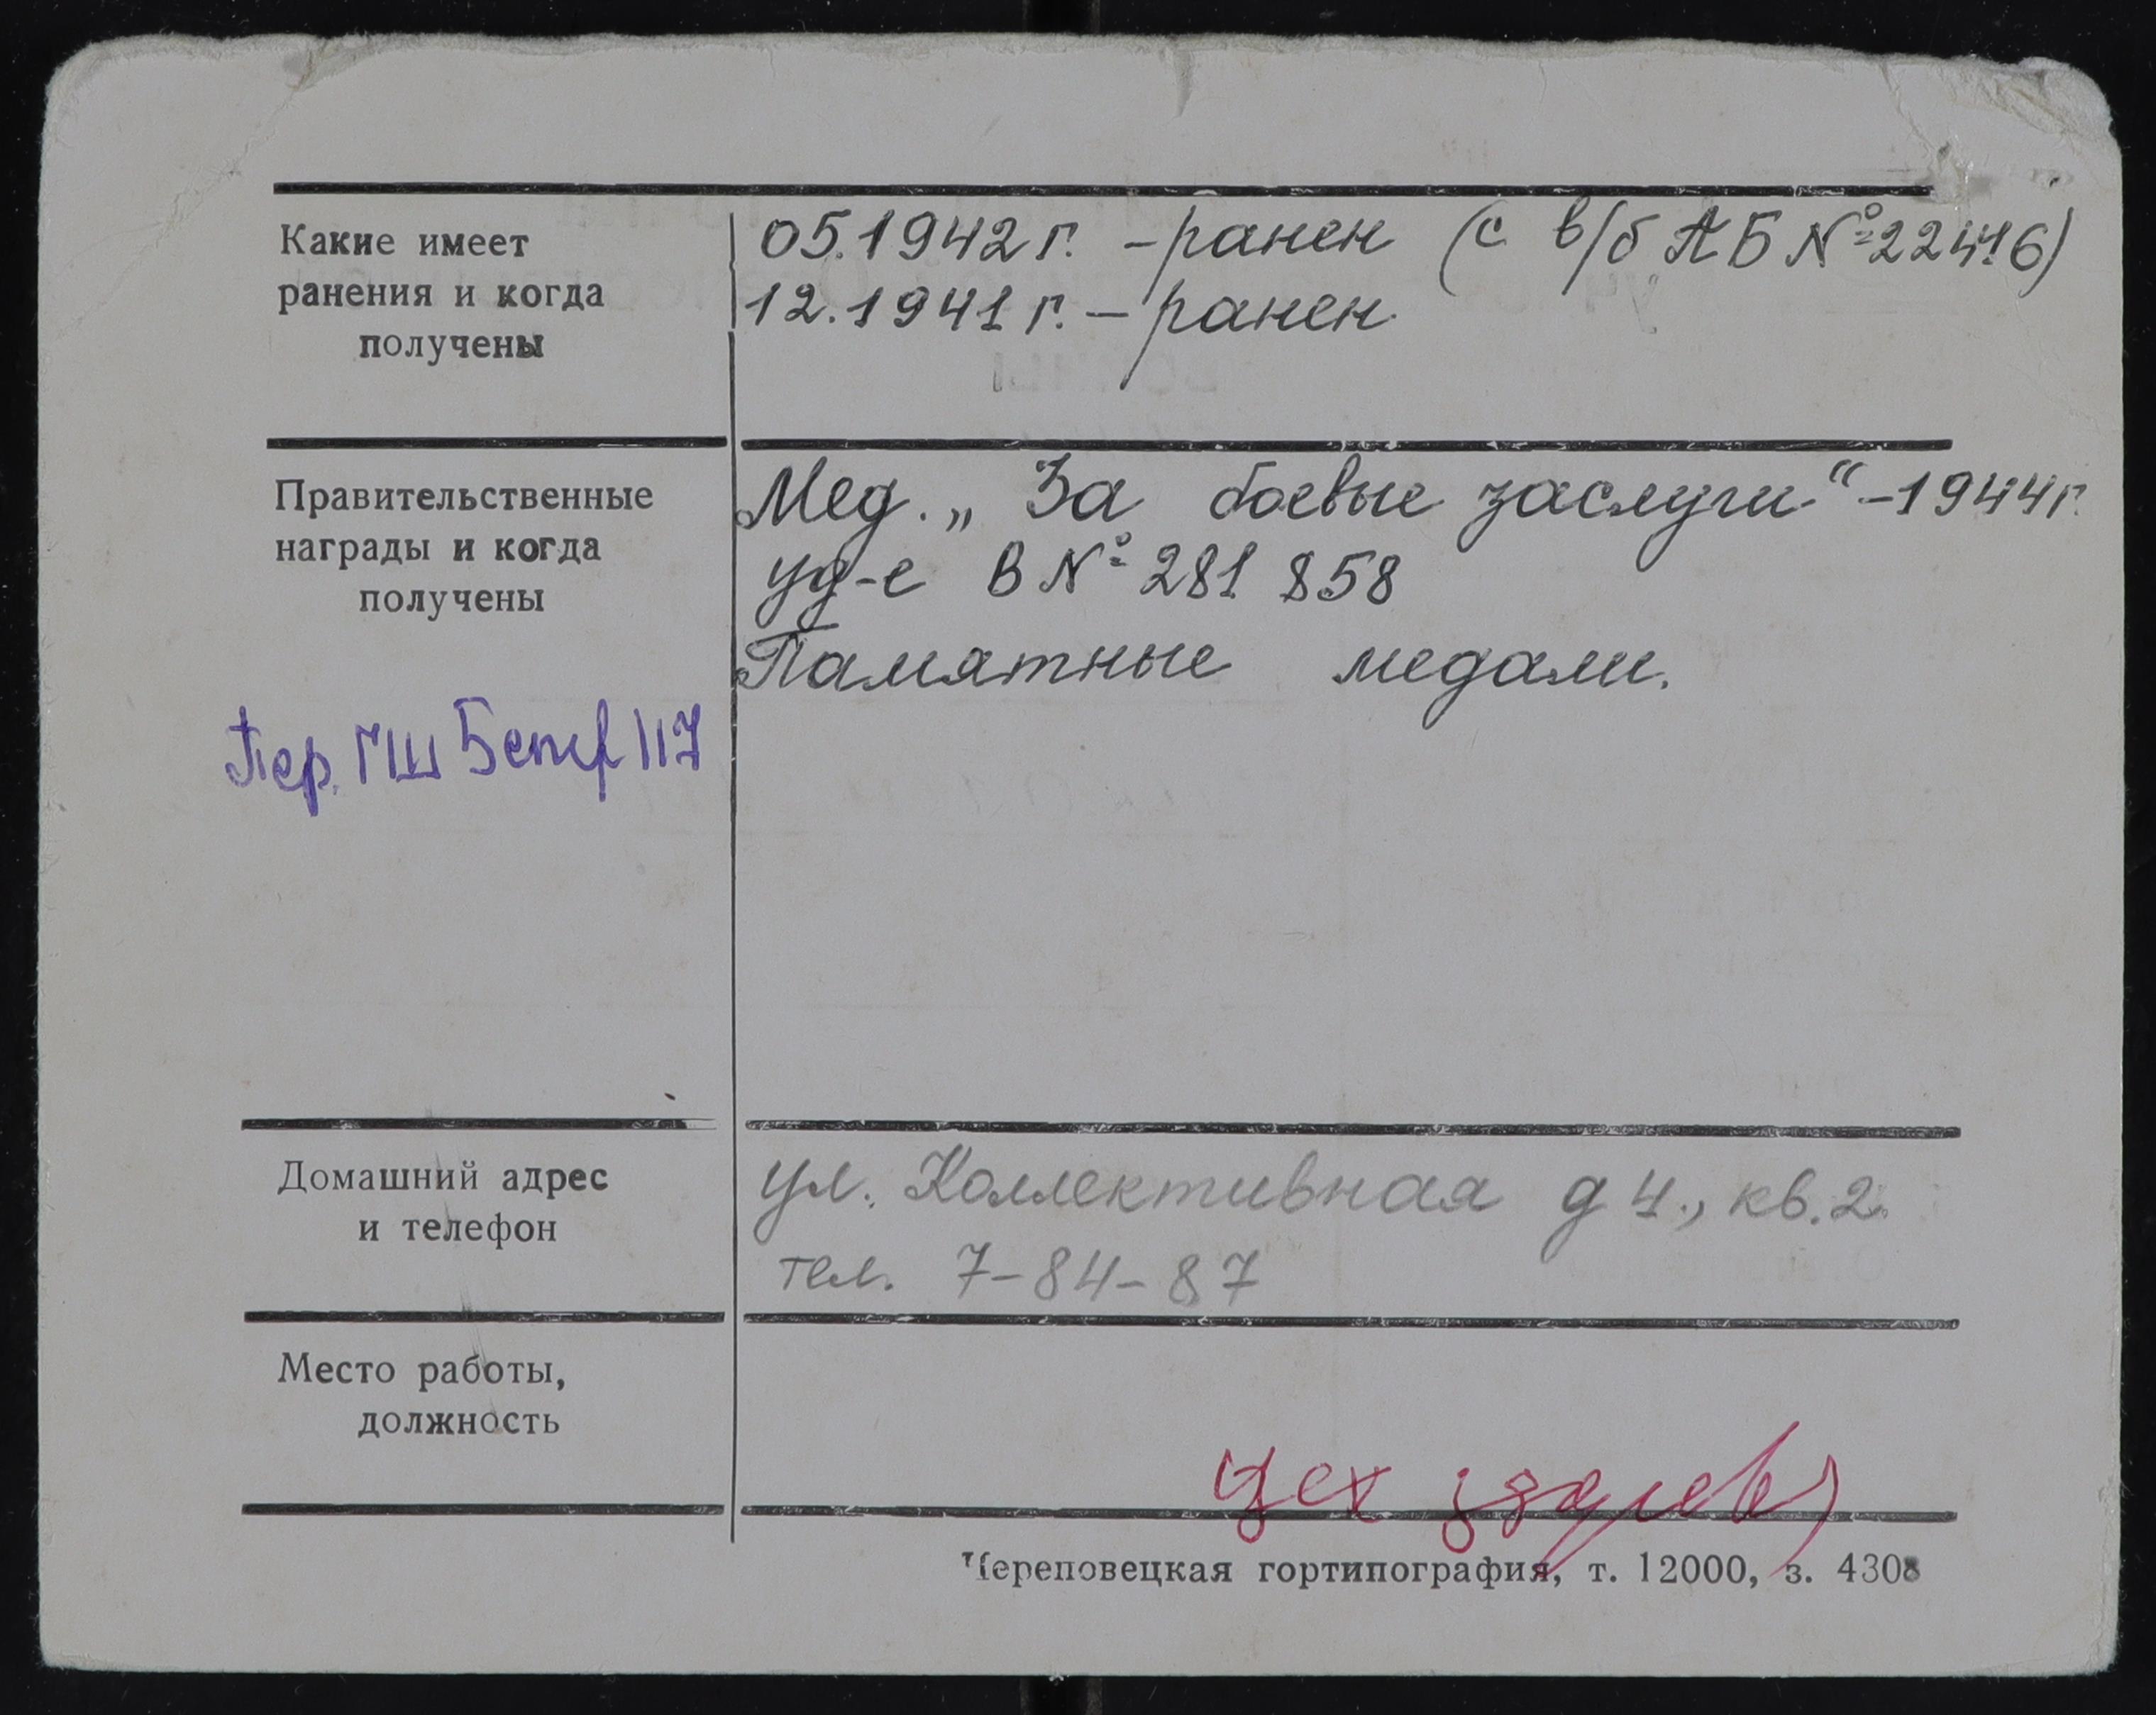 Какие имеет
ранения и когда
получены
05.1942 г. – ранен (с в/б АБ №22416)
12.1941 г. – ранен
Правительственные
награды и когда
получены
Мед. „За боевые заслуги“ – 1944 г.
уд-е В № 281 858
Памятные медали.
Пер. ГШ 117
Домашний адрес
и телефон
ул. Коллективная д 4., кв. 2.
тел. 7-84-87
Место работы,
должность
цех
Череповецкая гортипография, т. 12000, з. 4308